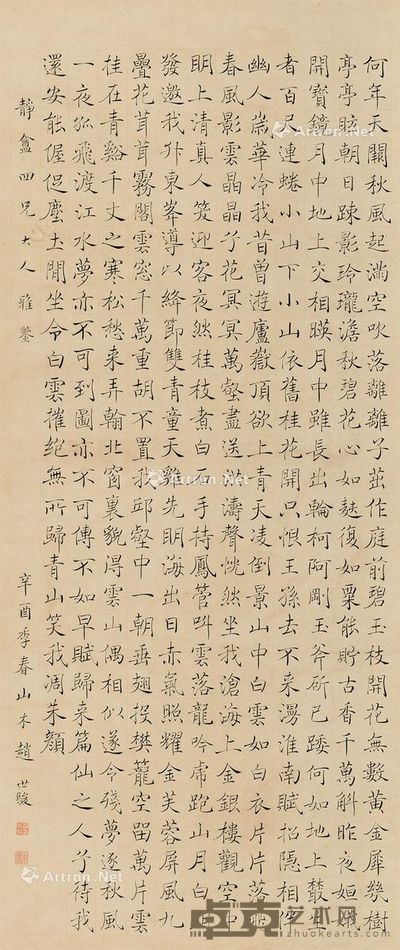 何年天闢秋風起滿空吹落離離子茁作庭前碧玉枝開花無數黃金犀幾樹
亭亭眩朝日踈影玲瓏澹秋碧花心如麩復如粟能貯古香千萬斛昨夜姮娥
開寶鏡月中地上交相暎月中雖長出輪柯阿剛玉斧斫已踒何如地上叢生
者百尺連蜷小山下小山依舊桂花開只恨王孫去不來漫淮南賦招隱相
幽人崇華冷我昔曾遊廬嶽頂欲上青天凌倒景山中白雲如白衣片片落
春風影雲晶晶兮花冥冥萬壑盡送洪濤聲恍然坐我滄海上金銀樓觀空中
明上清真人笑迎客夜然桂枝煮白石手持鳳管叫雲落龍吟虎跑山月白
發邀我升東峯導以絳節雙青童天雞先明海出日赤氣照耀金芙蓉屏風九
疊花茸茸霧閣雲窓千萬重胡不置我邱壑中一朝垂翅投樊籠空留萬片雲
挂在青谿千丈之寒松愁来弄翰北窗裏貌得雲山偶相似遂令殘夢逐秋風
一夜孤飛渡江水夢亦不可到圖亦不可傳不如早賦歸来篇仙之人兮待我
還安能偓促塵土間坐令白雲摧絕無所歸青山笑我凋朱顏
靜盦四兄大人雅鑒
辛酉季春山木趙世駿
Artron.Net
卓克艺术网